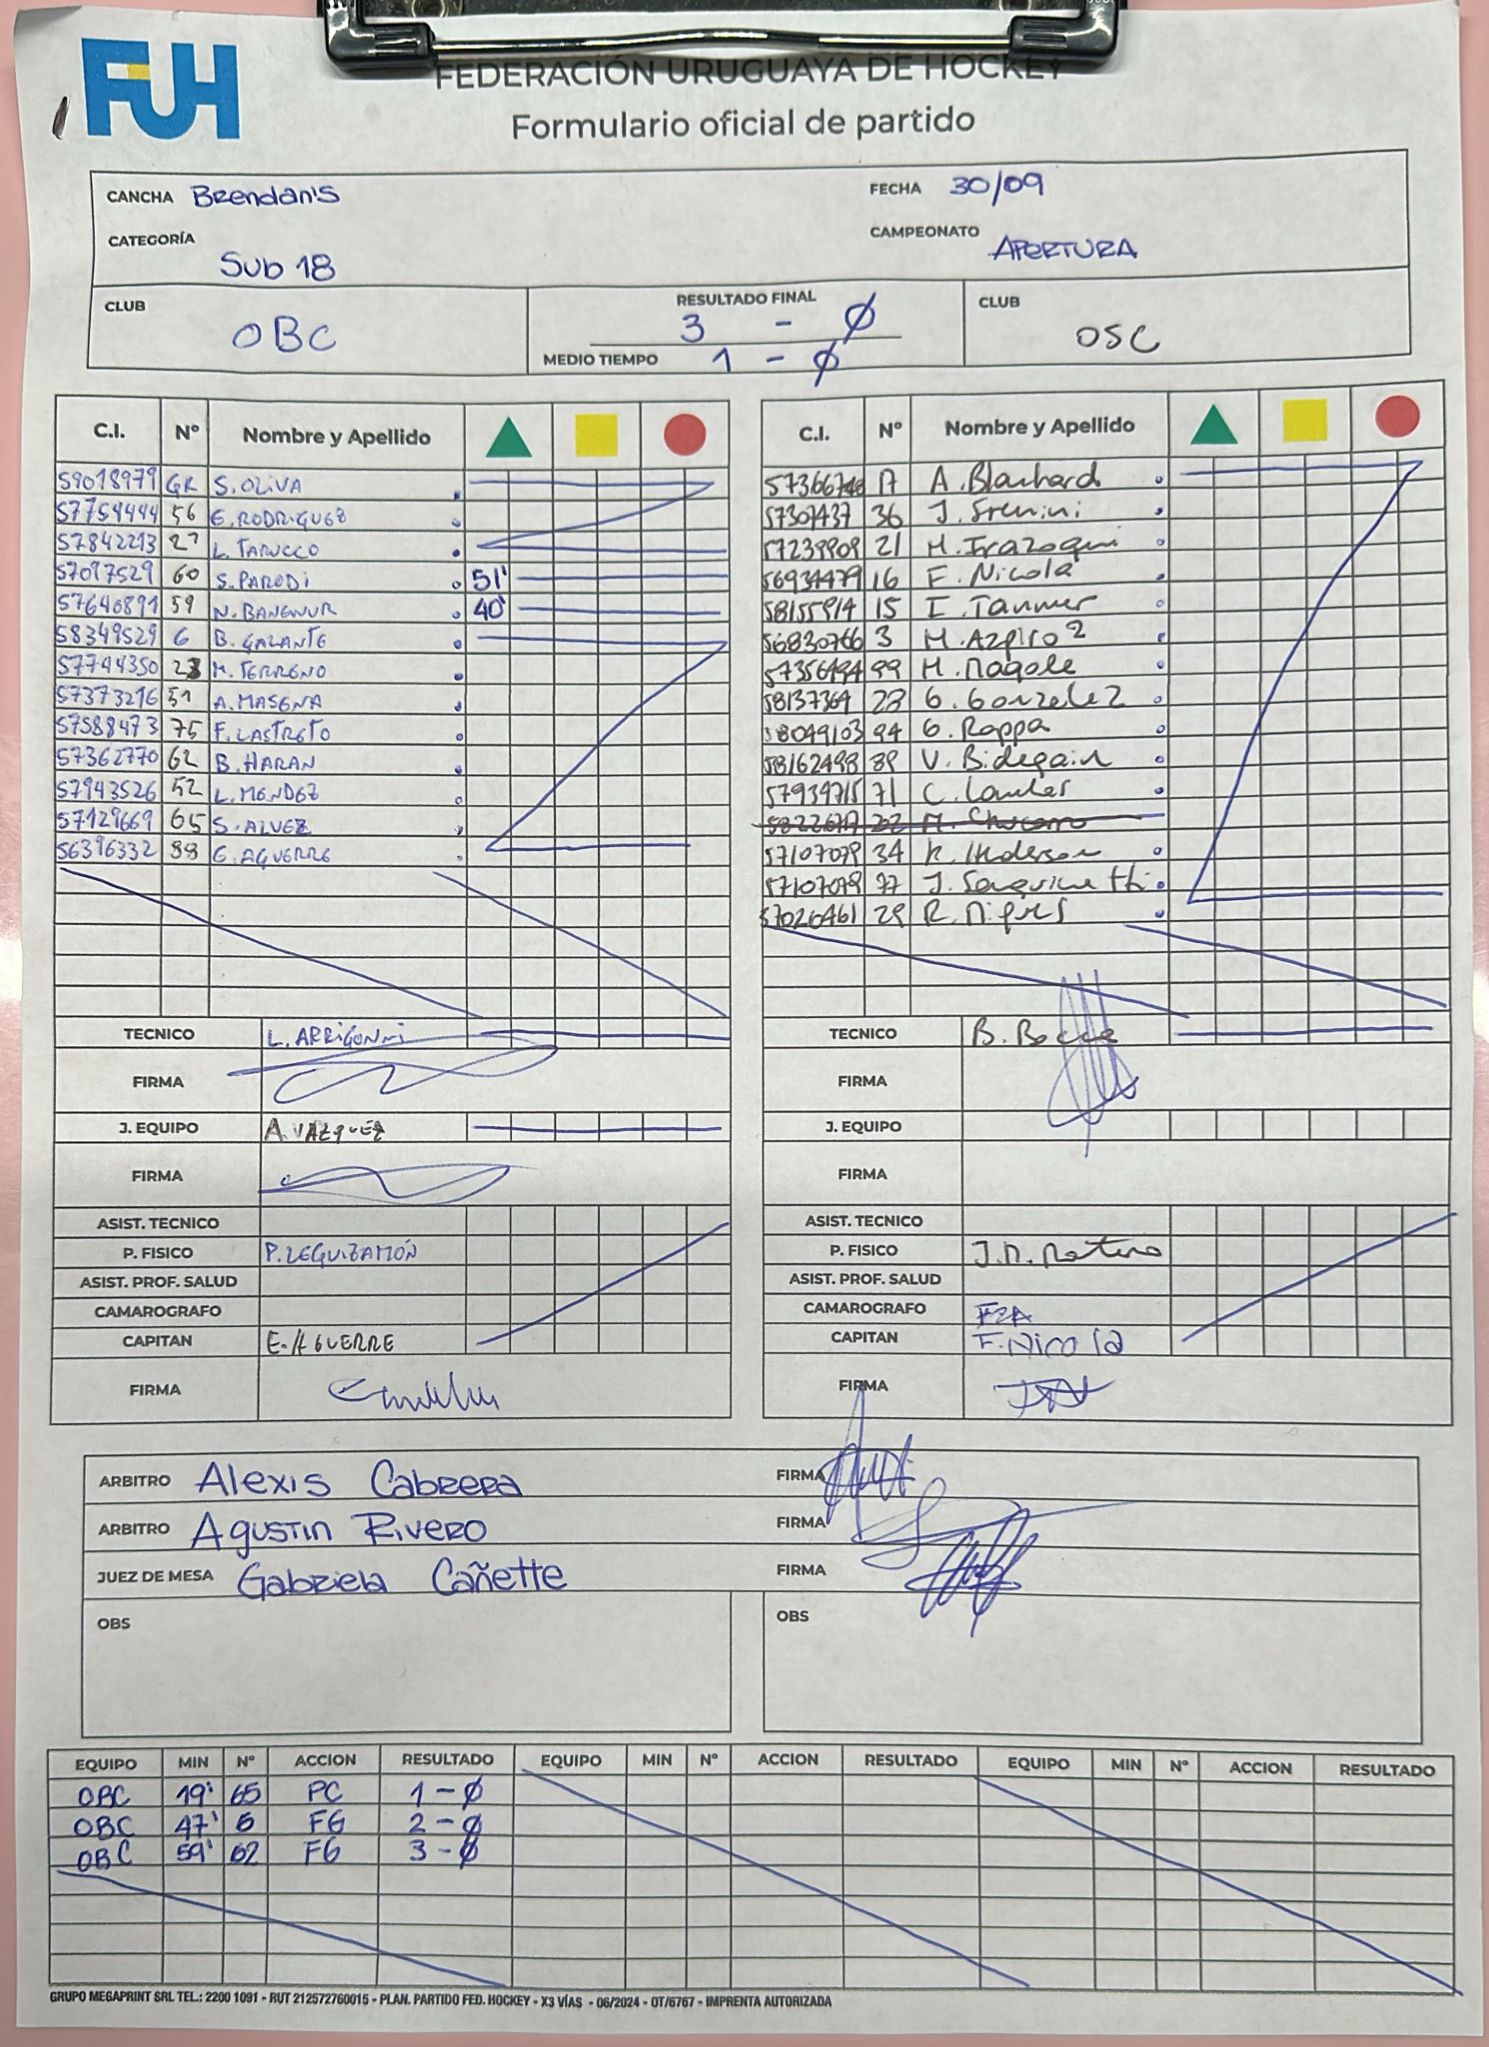 FUH
FEDERACIÓN URUGUAYA DE HOCKEY
Formulario oficial de partido
CANCHA Brendan's
FECHA 30/09
CATEGORÍA Sub 18
CAMPEONATO APERTURA
CLUB OBC
RESULTADO FINAL 3 - Ø
MEDIO TIEMPO 1 - Ø
CLUB OSC
C.I. Nº Nombre y Apellido
59018979 GK S. OLIVA
57754444 56 E. RODRIGUEZ
57842213 27 L. TARUCCO
57097529 60 S. PARODI 51'
57640891 59 N. BANEWUR 40'
58349529 6 B. GALANTE
57744350 23 M. TERRENO
57373216 51 A. MASENA
57588473 75 F. LASTRETO
57362770 62 B. HARAN
57943526 52 L. MENDEZ
57129669 65 S. ALVEZ
56396332 88 E. AGUERRE
TECNICO L. ARRIGONNI
FIRMA
J. EQUIPO A. VAZQUEZ
FIRMA
ASIST. TECNICO
P. FISICO P. LEGUIZAMÓN
ASIST. PROF. SALUD
CAMAROGRAFO
CAPITAN E. AGUERRE
FIRMA
C.I. Nº Nombre y Apellido
17 A. Blanchard
57307437 36 J. Srenini
57239909 21 M. Irazoqui
56934479 16 F. Nicola
58155914 15 I. Tanmer
56830766 3 M. Azpiroz
57356494 99 M. Nagole
58137364 28 G. Gonzalez
58049103 94 G. Rappa
58162498 89 V. Bidegain
57939715 71 C.
22 M. Chucarro
57107079 34 K. Anderson
57107079 77 J. Sanguinetti
57026461 29 R.
TECNICO B.
FIRMA
J. EQUIPO
FIRMA
ASIST. TECNICO
P. FISICO J.M.
ASIST. PROF. SALUD
CAMAROGRAFO
CAPITAN F. Nicola
FIRMA
ARBITRO Alexis Cabrera FIRMA
ARBITRO Agustin Rivero FIRMA
JUEZ DE MESA Gabriela Cañette FIRMA
OBS
OBS
EQUIPO MIN Nº ACCION RESULTADO EQUIPO MIN Nº ACCION RESULTADO EQUIPO MIN Nº ACCION RESULTADO
OBC 19' 65 PC 1 - Ø
OBC 47' 6 FG 2 - Ø
OBC 59' 62 FG 3 - Ø
GRUPO MEGAPRINT SRL TEL.: 2200 1091 - RUT 212572760015 - PLAN. PARTIDO FED. HOCKEY - X3 VÍAS - 06/2024 - OT/6767 - IMPRENTA AUTORIZADA